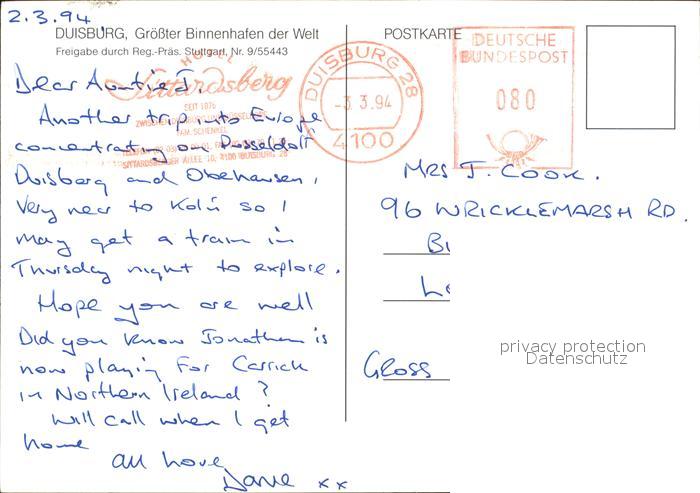 2.3.94
DUISBURG, Größter Binnenhafen der Welt
Freigabe durch Reg.-Präs. Stuttgart, Nr. 9/55443
POSTKARTE
HOTEL
Sittardsberg
SEIT 1876
FAM. SCHENKEL
SITTARDSBERGER ALLEE 10, 4100 DUISBURG 28
DUISBURG 28
-3.3.94
4100
DEUTSCHE
BUNDESPOST
080
Dear Auntie J.
Another trip into Europe
concentrating on Dusseldolf
Duisberg and Obehausen,
Very near to Koln so I
may get a train in
Thursday night to explore.
Hope you are well
Did you know Jonathan is
now playing For Carrick
in Northern Ireland ?
Will call when I get
home
All Love
Dave xx
MRS J. COOK.
96 WRICKLEMARSH RD.
Bl
Le
Gloss
privacy protection
Datenschutz